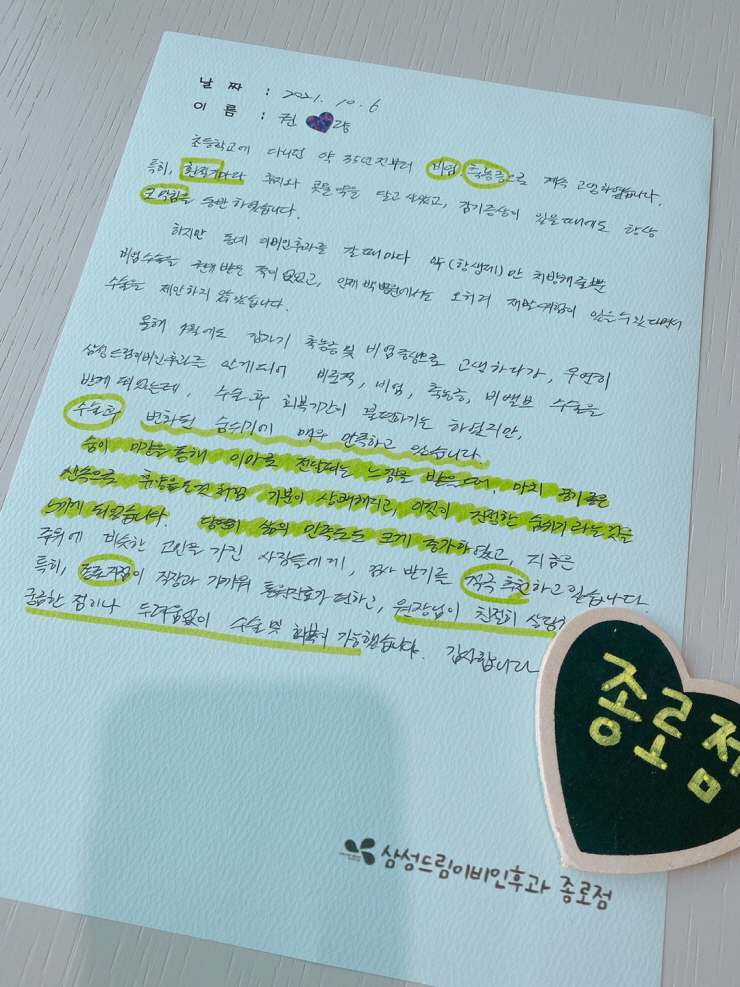 날 짜 : 2021. 10. 6
이 름 : 권 람
초등학교에 다니던 약 35년전부터 비염, 축농증으로 계속 고생하였습니다.
특히, 환절기마다 휴지와 콧물약을 달고 살았고, 감기증상이 있을때에도 항상
코막힘을 동반하였습니다.
하지만 동네 이비인후과를 갈때마다 약(항생제)만 처방해줄뿐
비염수술을 권해 받은 적이 없었고, 인제 백병원에서도 오히려 재발위험이 있을 수 있다면서
수술을 제안하지 않았습니다.
올해 4월에도 갑자기 축농증 및 비염증상으로 고생하다가, 우연히
삼성드림이비인후과를 알게되어 비중격, 비염, 축농증, 비밸브 수술을
받게 되었는데, 수술 후 회복기간이 불편하기는 하였지만,
수술후 변화된 숨쉬기에 매우 만족하고 있습니다.
숨이 미간을 통해 이마로 전달되는 느낌을 받을때, 마치 공기 좋은
산속으로 휴양을 온것처럼 기분이 상쾌해지고, 이것이 진정한 숨쉬기라는 것을
느끼게 되었습니다. 당연히 삶의 만족도는 크게 증가하였고, 지금은
주위에 비슷한 고민을 가진 사람들에게, 검사 받기를 적극 추천하고 있습니다.
특히, 종로지점이 직장과 가까워 통원진료가 편하고, 원장님이 친절히
궁금한 점이나 두려움없이 수술 및 회복이 가능했습니다. 감사합니다
종로점
삼성드림이비인후과 종로점